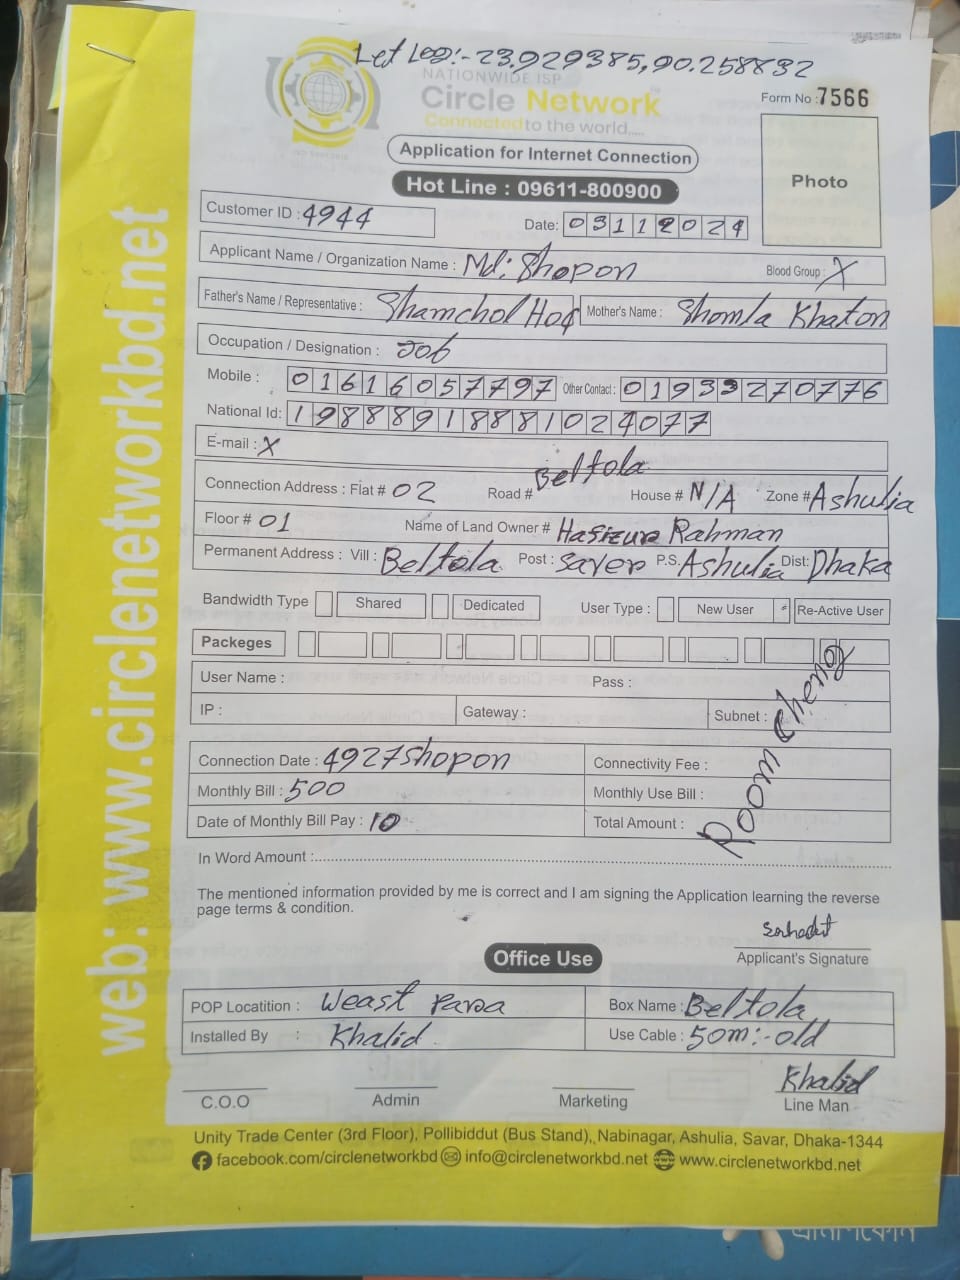 Let Log:- 23.929385,90.258832
NATIONWIDE ISP
Circle Network™
Connected to the world.....
Form No : 7566
Application for Internet Connection
Photo
Hot Line : 09611-800900
Customer ID : 4944
Date: 03112024
Applicant Name / Organization Name : Md: Shopon Blood Group : X
Father's Name / Representative : Shamchol Hoq Mother's Name : Shomla Khaton
Occupation / Designation : Job
Mobile : 01616057797 Other Contact : 01933270776
National Id: 19888918881024077
E-mail : X
Connection Address : Flat # 02 Road # Beltola House # N/A Zone # Ashulia
Floor # 01 Name of Land Owner # Hasizur Rahman
Permanent Address : Vill : Beltola Post : Saver P.S. Ashulia Dist: Dhaka
Bandwidth Type Shared Dedicated User Type : New User Re-Active User
Packeges
User Name : Pass :
IP : Gateway : Subnet :
Room Cheng
Connection Date : 4927Shopon Connectivity Fee :
Monthly Bill : 500 Monthly Use Bill :
Date of Monthly Bill Pay : 10 Total Amount :
In Word Amount :
The mentioned information provided by me is correct and I am signing the Application learning the reverse
page terms & condition.
Applicant's Signature
Office Use
POP Locatition : Weast Para Box Name : Beltola
Installed By : Khalid Use Cable : 50m:-old
Khalid
C.O.O Admin Marketing Line Man
Unity Trade Center (3rd Floor), Pollibiddut (Bus Stand), Nabinagar, Ashulia, Savar, Dhaka-1344
facebook.com/circlenetworkbd info@circlenetworkbd.net www.circlenetworkbd.net
web: www.circlenetworkbd.net
গ্রামীণফোন